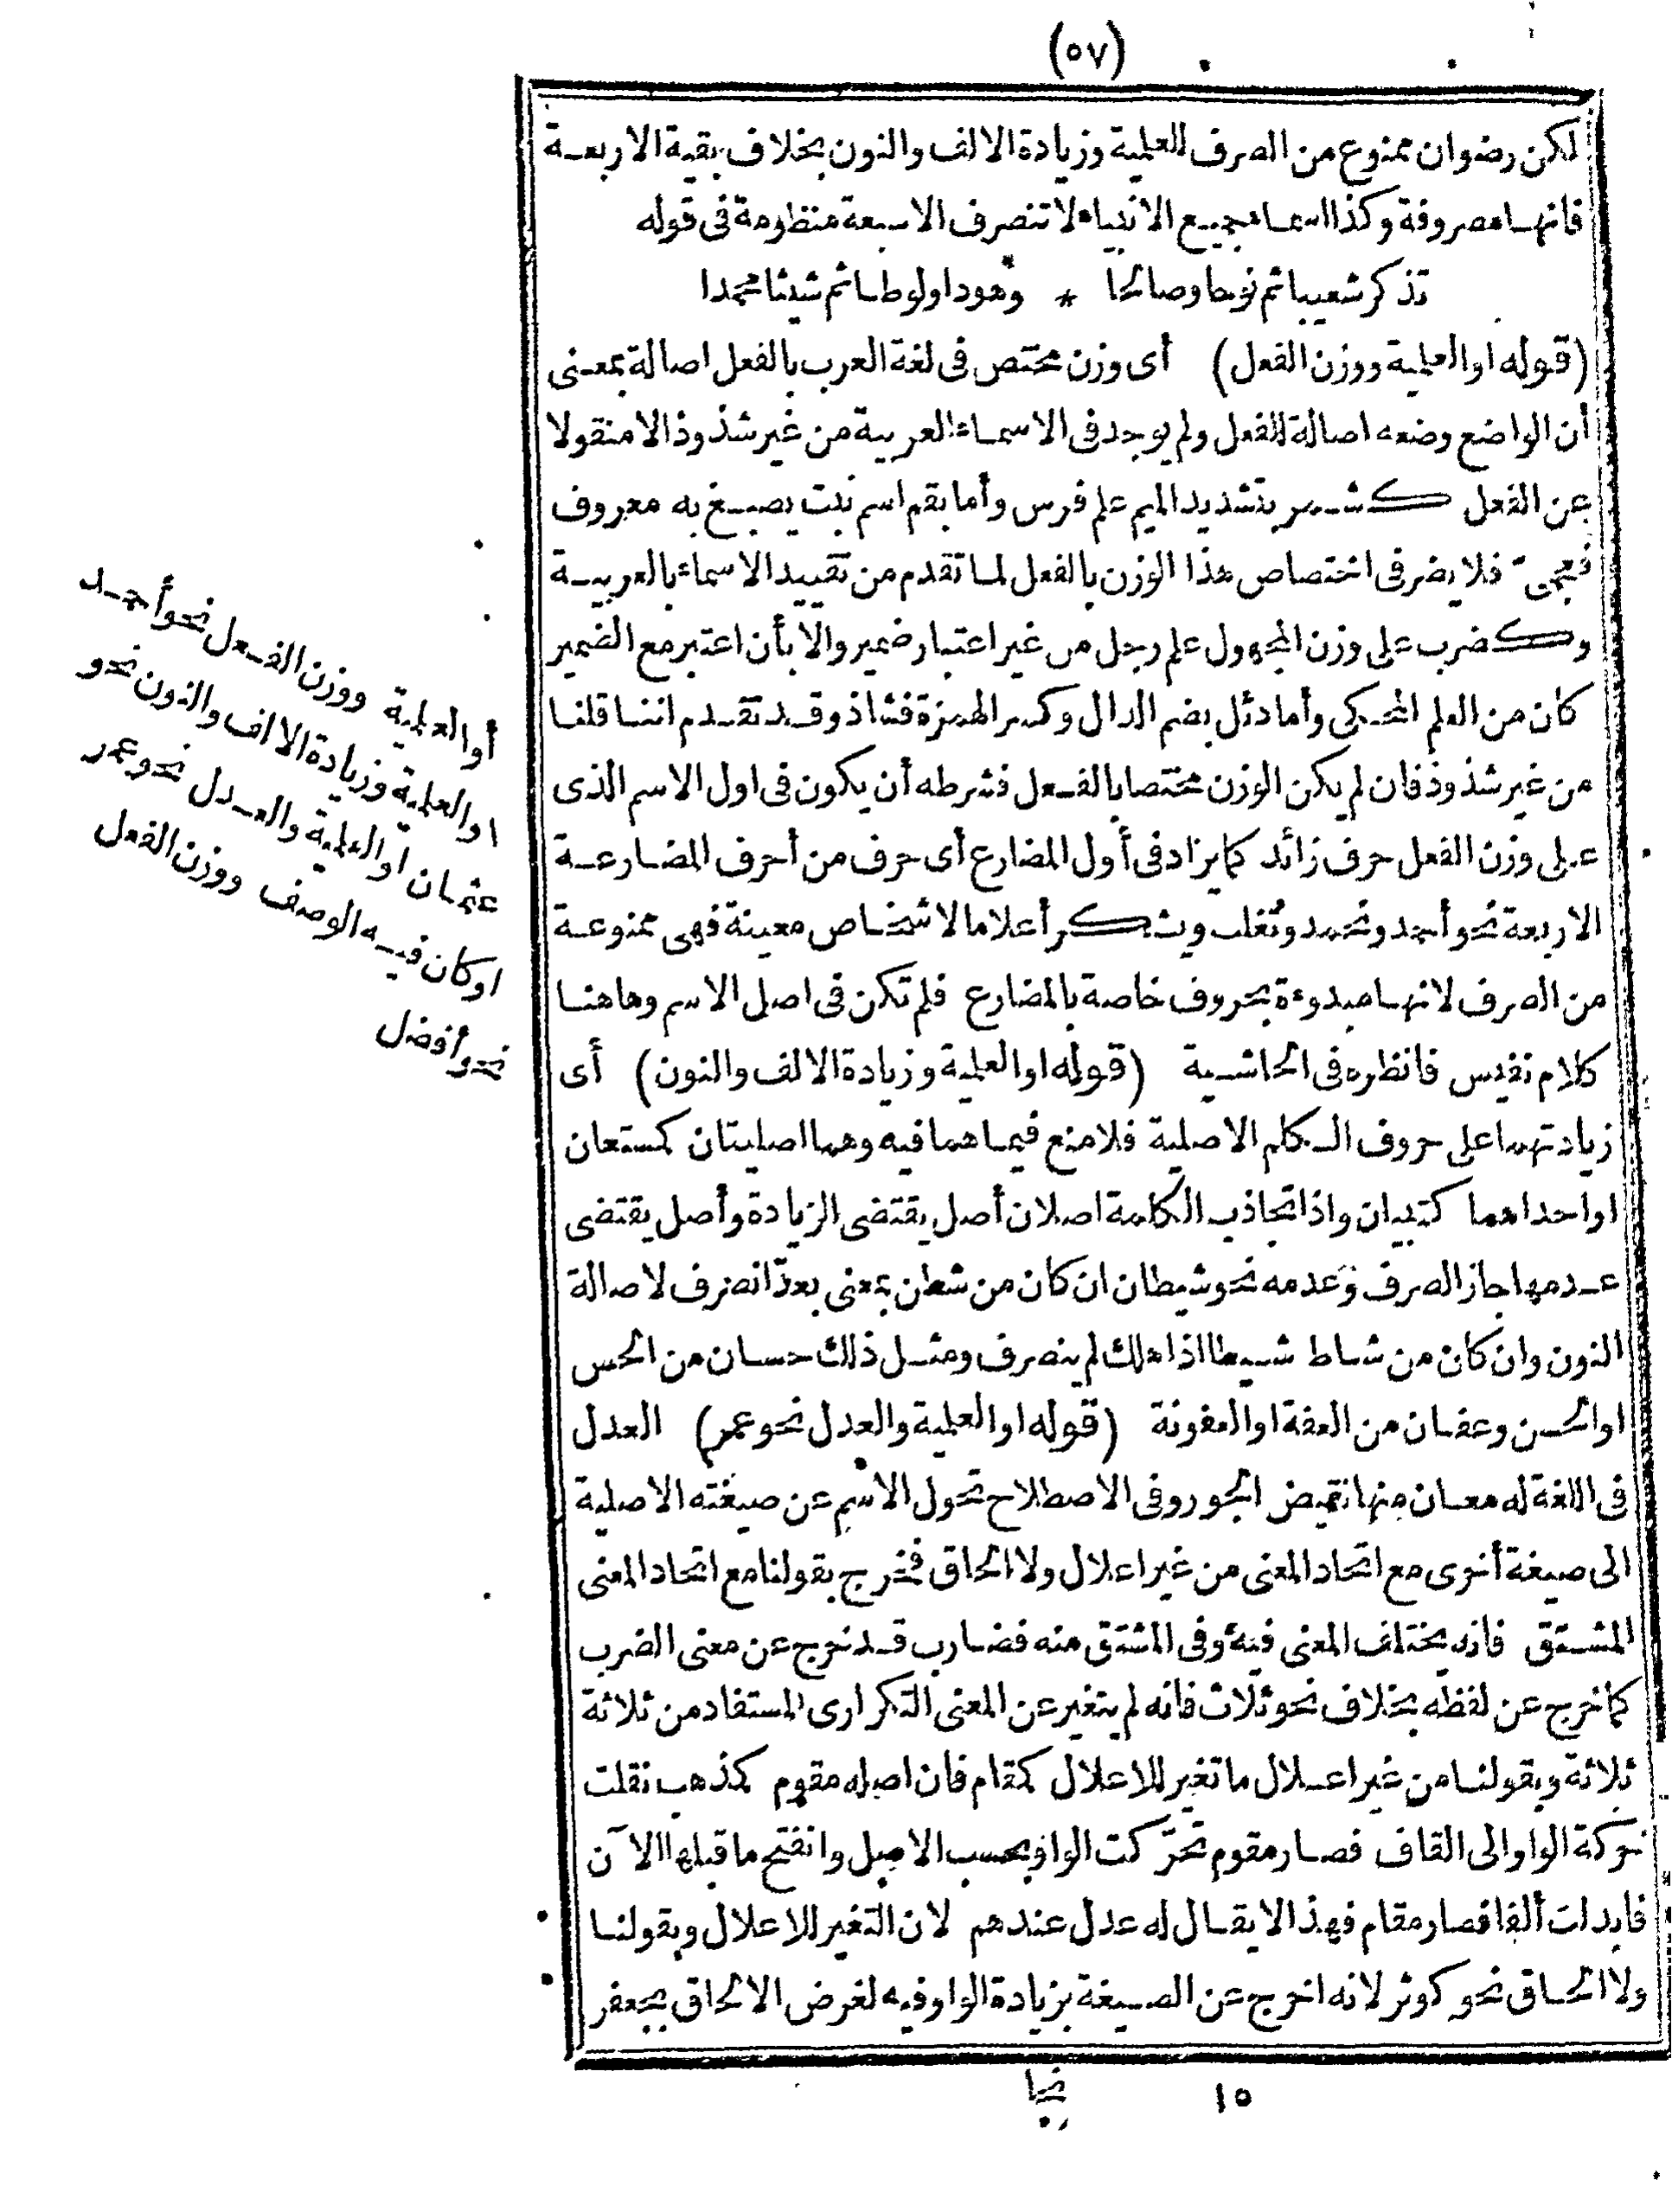 (٥٧)
لكن رضوان ممنوع من الصرف للعلمية وزيادة الالف والنون بخلاف بقية الاربعة
فانها مصروفة وكذا اسماء جميع الانبياء لا تنصرف الا سبعة منظومة فى قوله
تذكر شعيبا ثم نوحا وصالحا * وهودا ولوطا ثم شيثا محمدا
(قوله او العلمية ووزن الفعل) أى وزن مختص فى لغة العرب بالفعل اصالة بمعنى
أن الواضع وضعه اصالة للفعل ولم يوجد فى الاسماء العربية من غير شذوذ الا منقولا
عن الفعل كشمر بتشديد الميم علم فرس وأما بقم اسم نبت يصبغ به معروف
فعجمىّ فلا يضر فى اختصاص هذا الوزن بالفعل لما تقدم من تقييد الاسماء بالعربية
وكضرب على وزن المجهول علم رجل من غير اعتبار ضمير والا بأن اعتبر مع الضمير
كان من العلم المحكى وأما دئل بضم الدال وكسر الهمزة فشاذ وقد تقدم اننا قلنا
من غير شذوذ فان لم يكن الوزن مختصا بالفعل فشرطه أن يكون فى اول الاسم الذى
على وزن الفعل حرف زائد كما يزاد فى أول المضارع أى حرف من أحرف المضارعة
الاربعة نحو أحمد ونحمد وتغلب ويشكر أعلاما لاشخاص معينة فهى ممنوعة
من الصرف لانها مبدوءة بحروف خاصة بالمضارع فلم تكن فى اصل الاسم وهاهنا
كلام نفيس فانظره فى الحاشية (قوله او العلمية وزيادة الالف والنون) أى
زيادتهما على حروف الكلم الاصلية فلا منع فيما هما فيه وهما اصليتان كمستعان
او احداهما كتبيان واذا تجاذب الكلمة اصلان أصل يقتضى الزيادة وأصل يقتضى
عدمها جاز الصرف وعدمه نحو شيطان ان كان من شطن بمعنى بعدّ انصرف لاصالة
النون وان كان من شاط شيطا اذا هلك لم ينصرف ومثل ذلك حسان من الحس
او الحسن وعفان من العفة او العفونة (قوله او العلمية والعدل نحو عمر) العدل
فى اللغة له معان منها نقيض الجور وفى الاصطلاح تحول الاسم عن صيغته الاصلية
الى صيغة أخرى مع اتحاد المعنى من غير اعلال ولا الحاق فخرج بقولنا مع اتحاد المعنى
المشتق فانه يختلف المعنى فيه وفى المشتق منه فضارب قد خرج عن معنى الضرب
كما خرج عن لفظه بخلاف نحو ثلاث فانه لم يتغير عن المعنى التكرارى المستفاد من ثلاثة
ثلاثة وبقولنا من غير اعلال ما تغير للاعلال كمقام فان اصله مقوم كمذهب نقلت
حركة الواو الى القاف فصار مقوم تحرّكت الواو بحسب الاصل وانفتح ما قبلها الآن
فابدلت ألفا فصار مقام فهذا لا يقال له عدل عندهم لان التغير للاعلال وبقولنا
ولا الحاق نحو كوثر لانه اخرج عن الصيغة بزيادة الواو فيه لغرض الالحاق بجعفر
١٥
أو العلمية ووزن الفعل نحو أحمد
او العلمية وزيادة الالف والنون نحو
عثمان او العلمية والعدل نحو عمر
او كان فيه الوصف ووزن الفعل
نحو أفضل